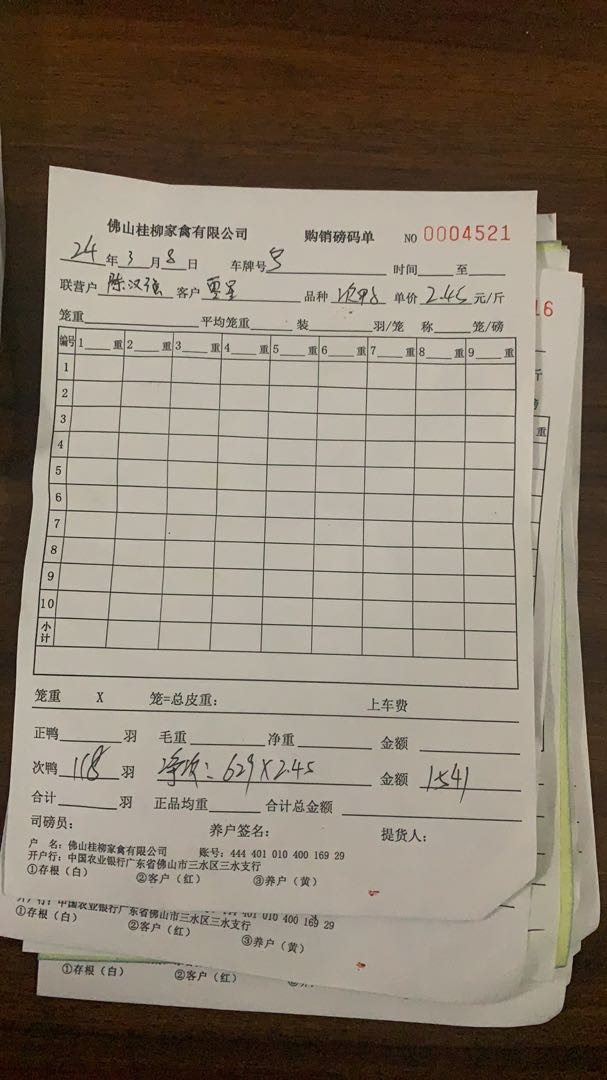 佛山桂柳家禽有限公司 购销磅码单 NO 0004521
24年3月8日 车牌号 时间____至____
联营户 陈汉强 客户 品种 次鸭 单价 2.45 元/斤
笼重____平均笼重____装____羽/笼 称____笼/磅
编号 1____重 2____重 3____重 4____重 5____重 6____重 7____重 8____重 9____重
1
2
3
4
5
6
7
8
9
10
小计
笼重 X 笼=总皮重: 上车费
正鸭____羽 毛重____净重____ 金额____
次鸭 118 羽 净次: 629×2.45 金额 1541
合计____羽 正品均重____合计总金额____
司磅员: 养户签名: 提货人:
户 名: 佛山桂柳家禽有限公司 账号: 444 401 010 400 169 29
开户行: 中国农业银行广东省佛山市三水区三水支行
①存根(白) ②客户(红) ③养户(黄)
开户行: 中国农业银行广东省佛山市三水区三水支行 444 401 010 400 169 29
①存根(白) ②客户(红) ③养户(黄)
①存根(白) ②客户(红)
16
斤
重